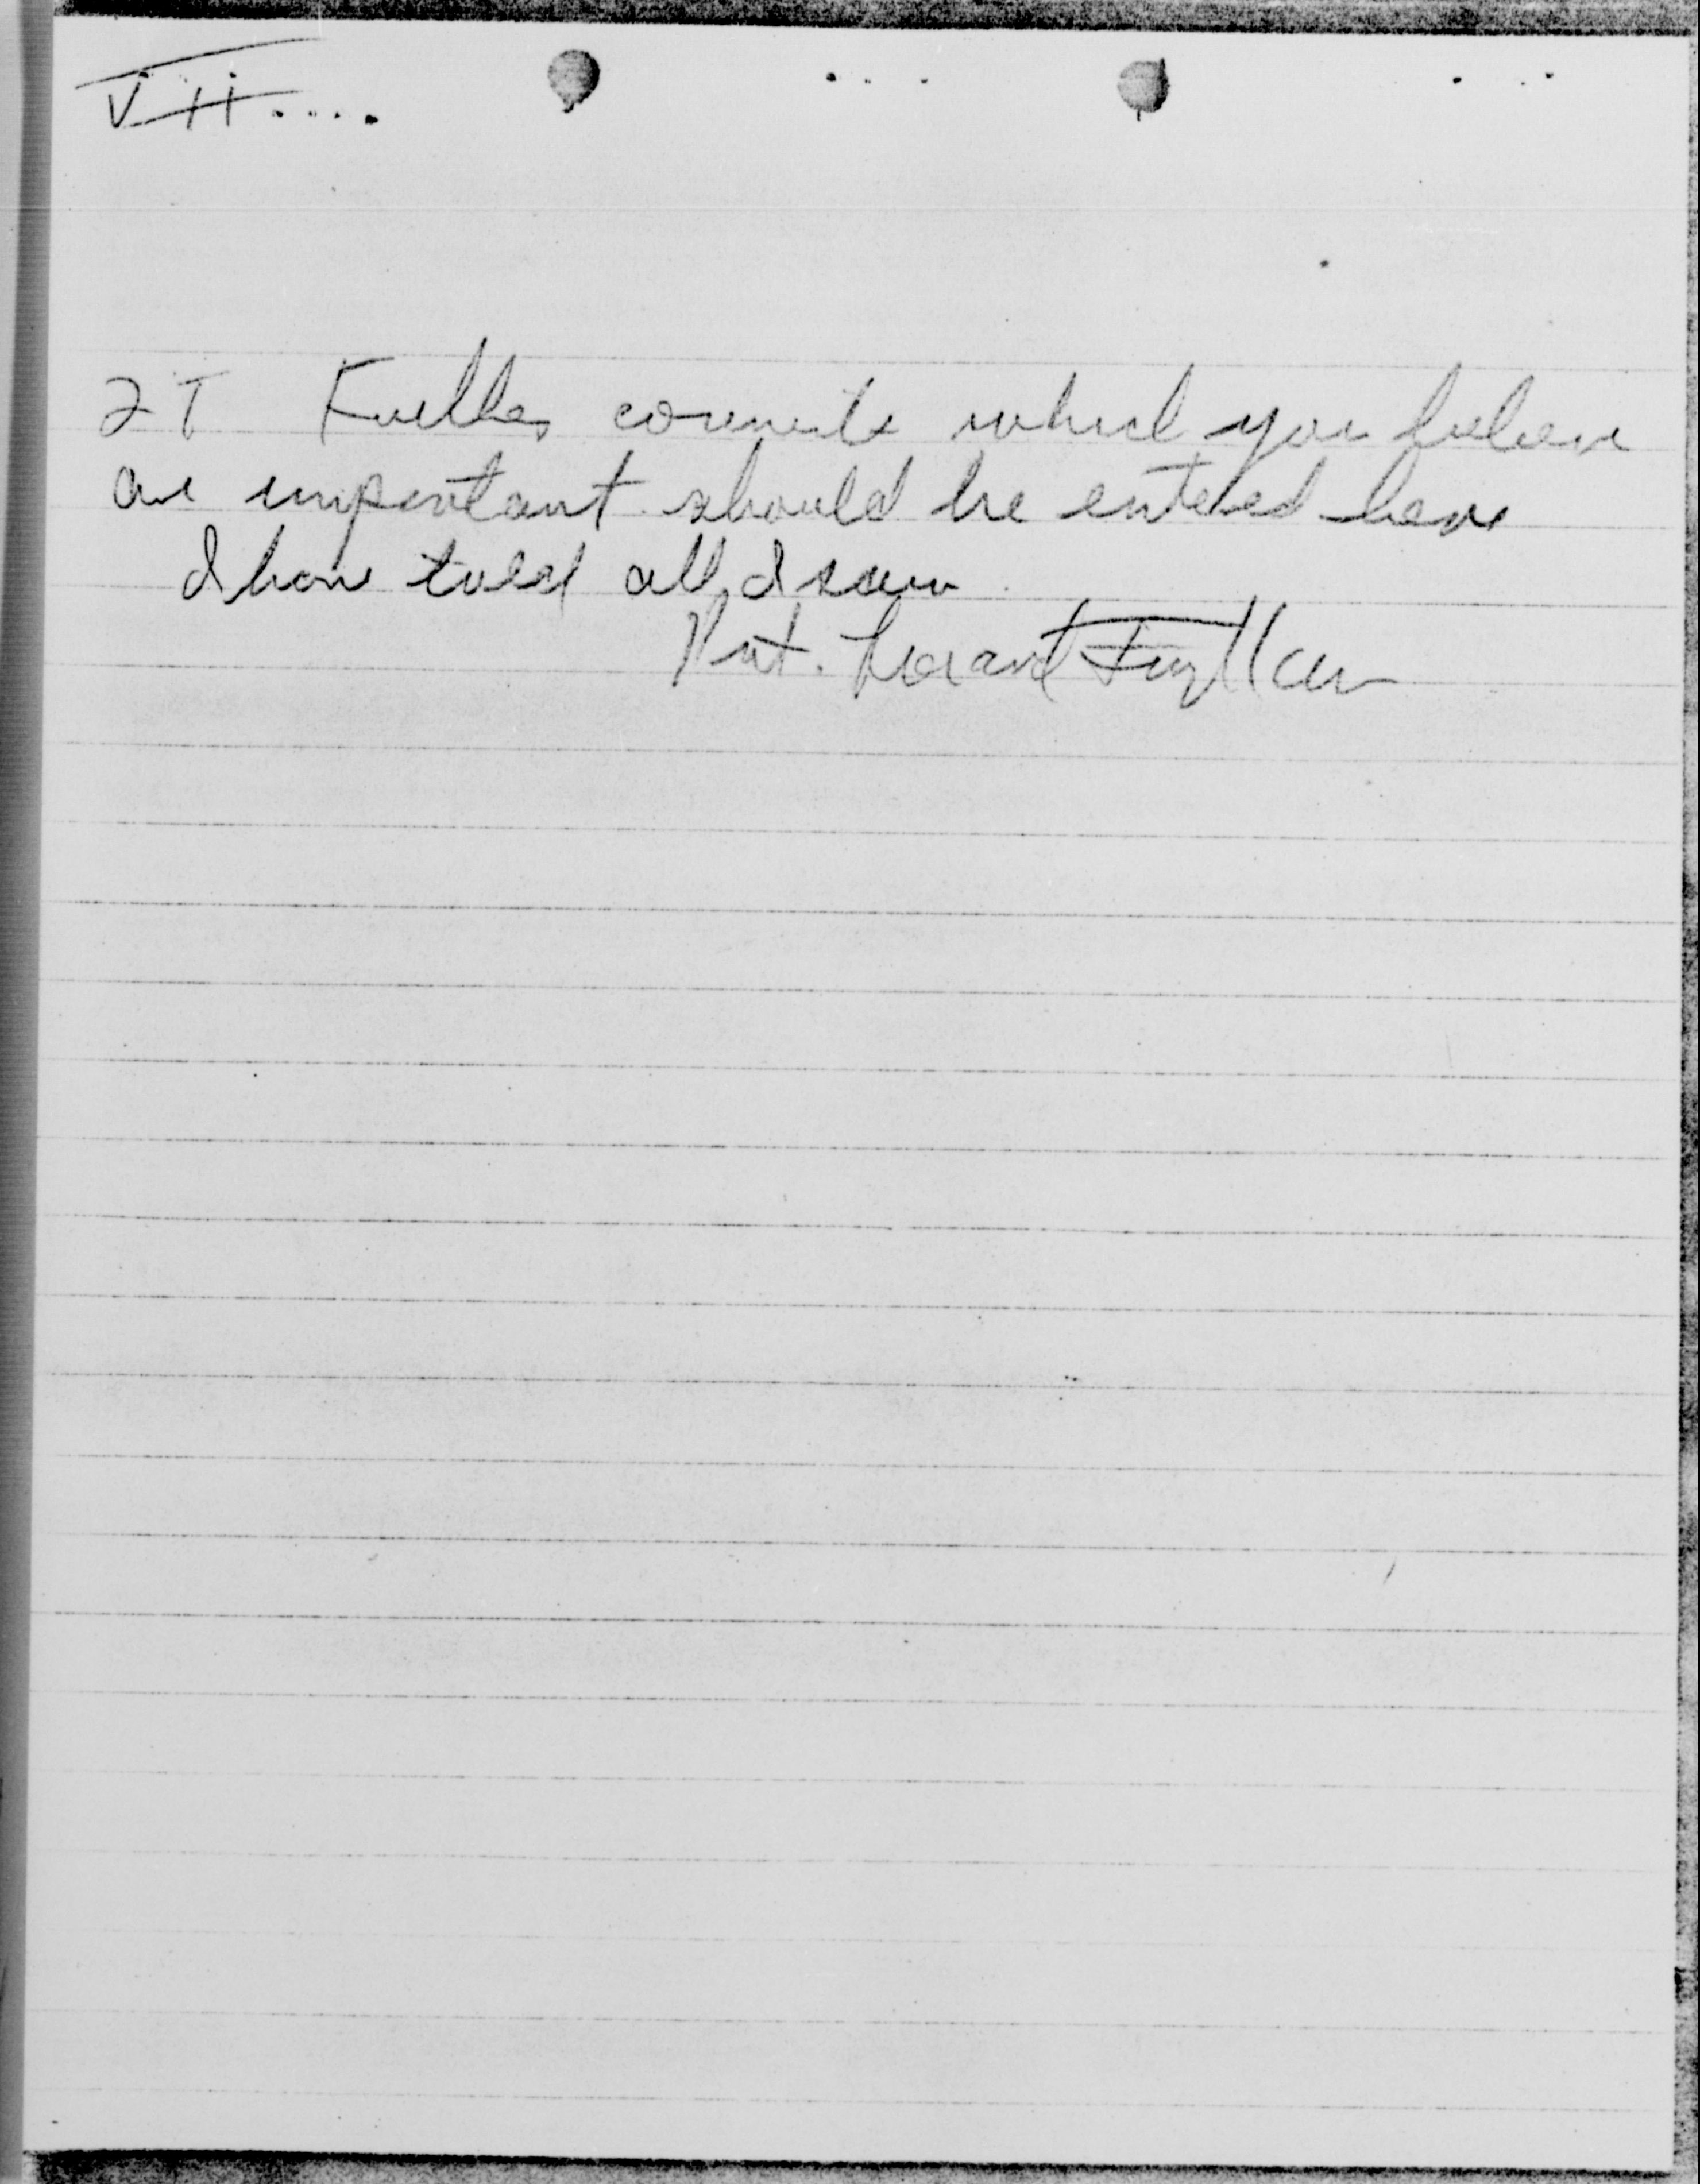 VII....
2T Further comments which you believe
are important should be entered here
I have told all I saw.
Pvt.